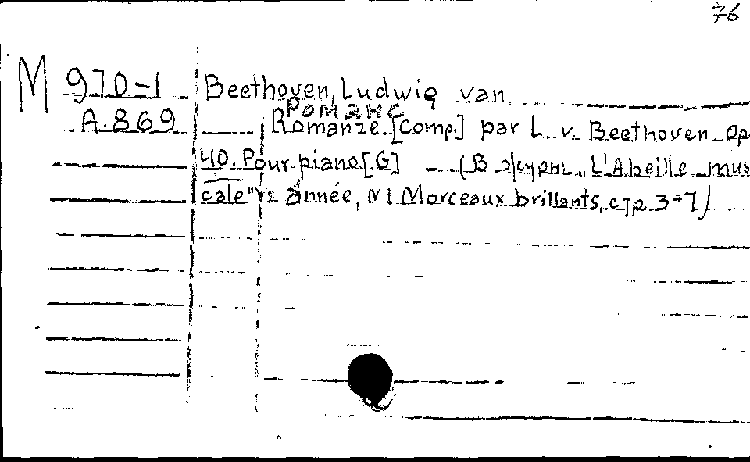 76
M 970-1 Beethoven, Ludwig van
А.869 Romanze. [Comp.] par L. v. Beethoven. Op.
40. Pour piano [G] — (В журн. "L'Abeille musi
cale" année, N1 Morceaux brillants, стр. 3-7)